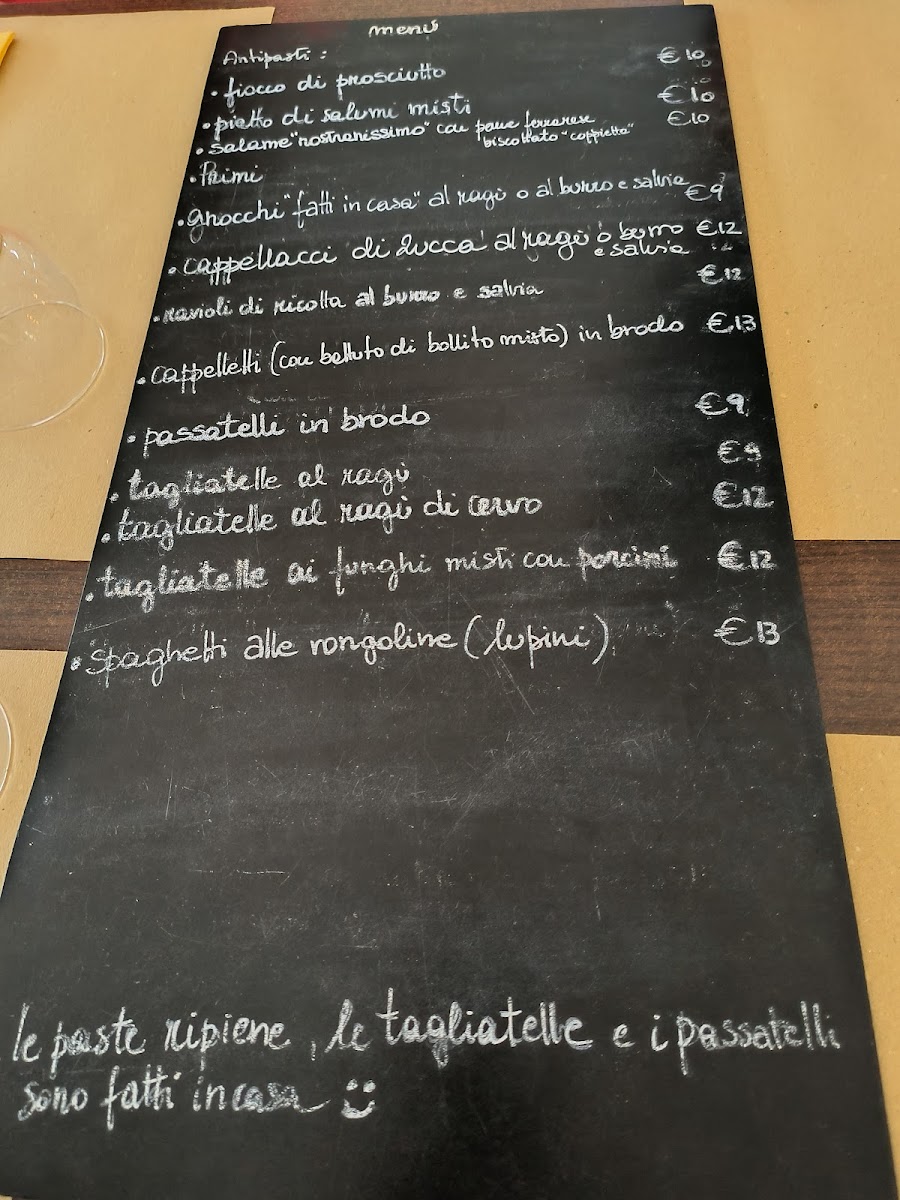 menú
Antipasti:
• fiocco di prosciutto €10
• piatto di salumi misti €10
• salame "nostranissimo" con pane ferrarese €10
biscottato "coppietta"
• Primi
• gnocchi "fatti in casa" al ragù o al burro e salvia €9
• cappellacci di zucca al ragù o burro €12
e salvia
• ravioli di ricotta al burro e salvia €12
• cappelletti (con battuto di bollito misto) in brodo €13
• passatelli in brodo €9
• tagliatelle al ragù €9
• tagliatelle al ragù di cervo €12
• tagliatelle ai funghi misti con porcini €12
• spaghetti alle vongoline (lupini) €13
le paste ripiene, le tagliatelle e i passatelli
sono fatti in casa